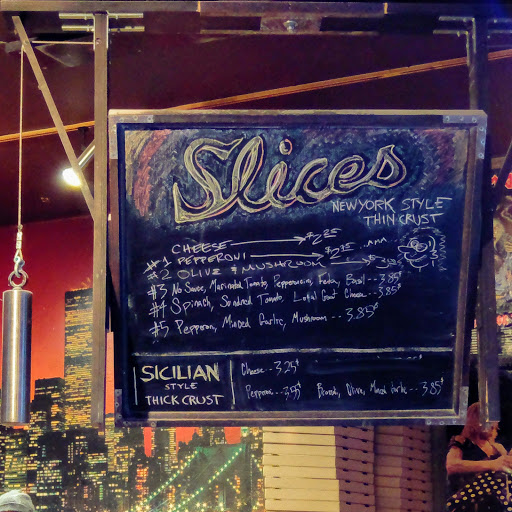 Slices
NEW YORK STYLE
THIN CRUST
CHEESE
#1 PEPPERONI
#2 OLIVE & MUSHROOM
#3 No Sauce, Marinated Tomato, Pepperoncini, Feta, Basil --- 3.85¢
#4 Spinach, Sundried Tomato, Local Goat Cheese --- 3.85¢
#5 Pepperoni, Minced Garlic, Mushroom --- 3.85¢
SICILIAN
STYLE
THICK CRUST
Cheese --- 3.25¢
Pepperoni --- 3.55¢
Olive, Minced Garlic --- 3.85¢